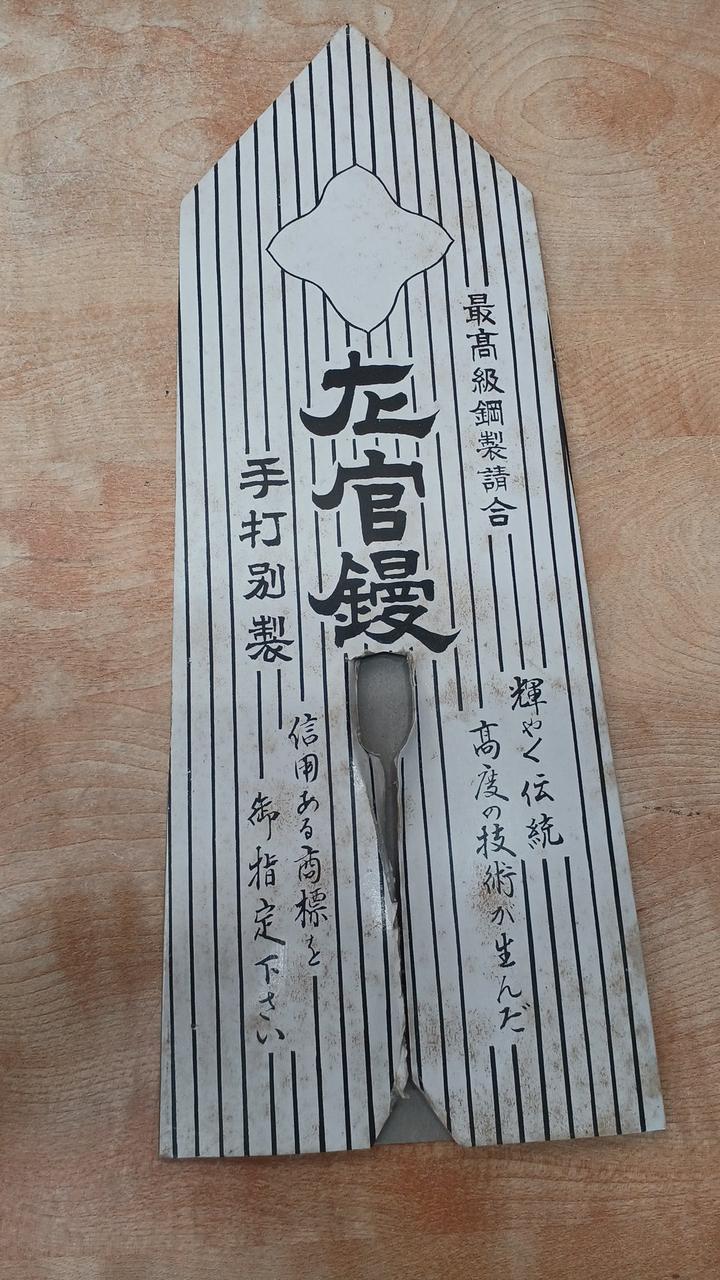 最高級鋼製請合
左官鏝
手打別製
輝やく伝統
高度の技術が生んだ
信用ある商標を
御指定下さい